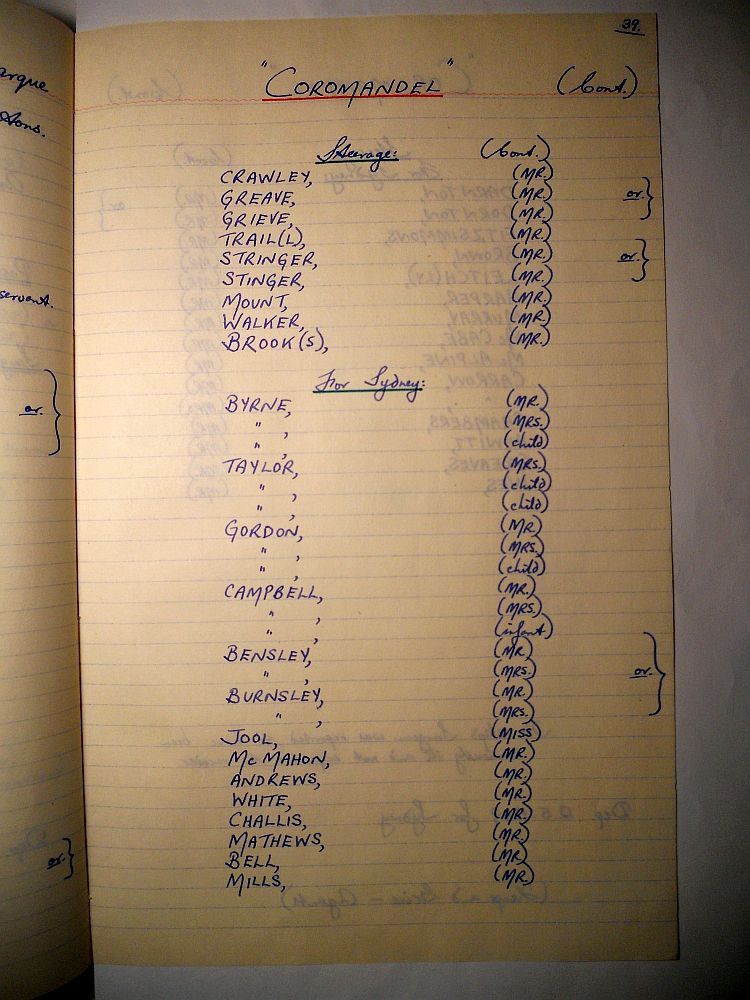 39.
"COROMANDEL" (Cont.)
Steerage: (Cont.)
CRAWLEY, (MR.)
GREAVE, (MR.) or.
GRIEVE, (MR.)
TRAIL(L), (MR.)
STRINGER, (MR.) or.
STINGER, (MR.)
MOUNT, (MR.)
WALKER, (MR.)
BROOK(S), (MR.)
For Sydney:
BYRNE, (MR.)
" , (MRS.)
" , (child)
TAYLOR, (MRS.)
" , (child)
" , (child)
GORDON, (MR.)
" , (MRS.)
" , (child)
CAMPBELL, (MR.)
" , (MRS.)
" , (infant)
BENSLEY, (MR.)
" , (MRS.) or.
BURNSLEY, (MR.)
" , (MRS.)
JOOL, (MISS)
McMAHON, (MR.)
ANDREWS, (MR.)
WHITE, (MR.)
CHALLIS, (MR.)
MATHEWS, (MR.)
BELL, (MR.)
MILLS, (MR.)
tons.
servant.
or.
or.